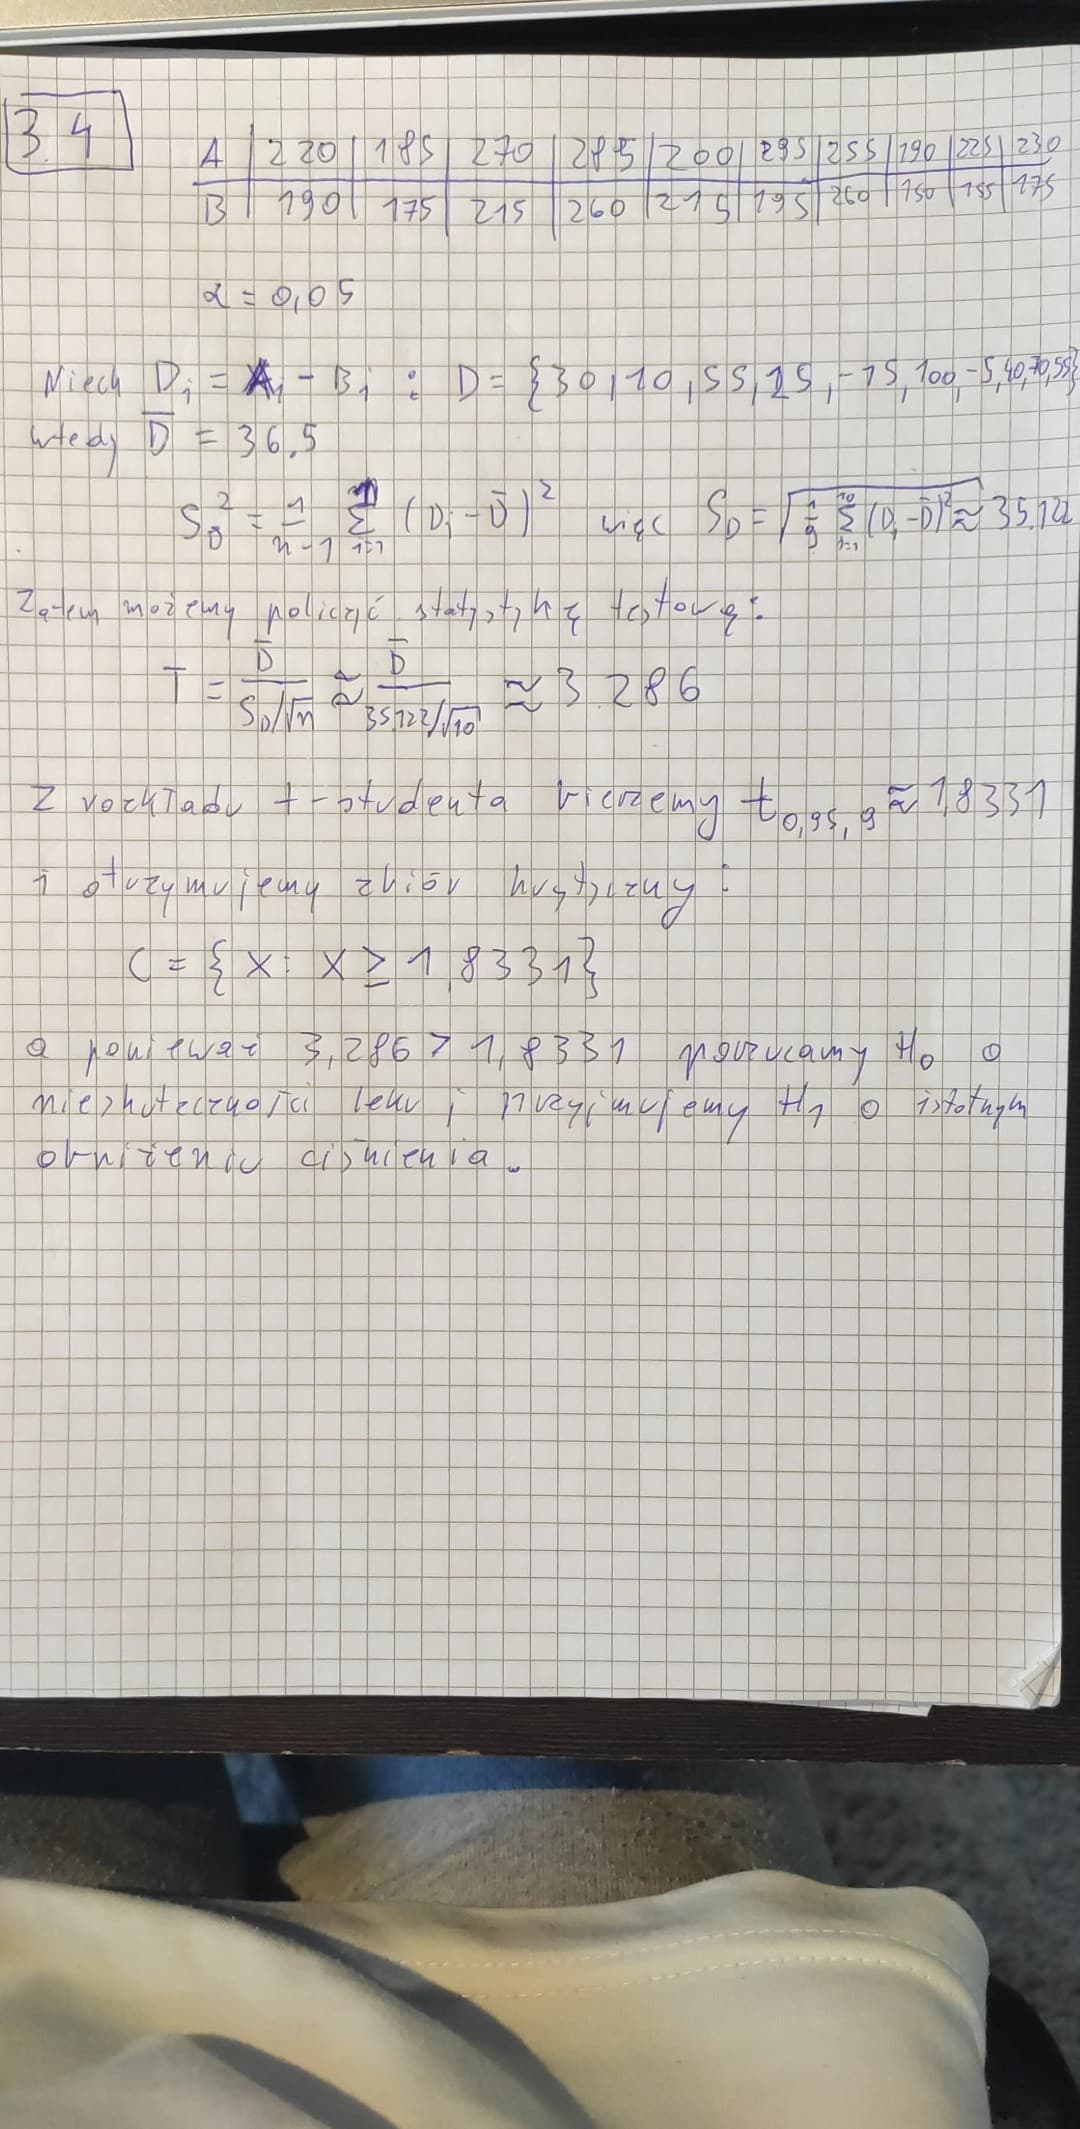 3.4
A | 220 | 185 | 270 | 285 | 200 | 295 | 255 | 190 | 225 | 230
B | 190 | 175 | 215 | 260 | 215 | 195 | 260 | 150 | 155 | 175
α = 0,05
Niech Di = Ai - Bi : D = {30, 10, 55, 25, -15, 100, -5, 40, 70, 55}
wtedy D̄ = 36.5
S_D² = 1/(n-1) Σ_{i=1}^{n} (Di - D̄)² więc S_D = √(1/9 Σ_{i=1}^{10} (Di - D̄)²) ≈ 35.122
Zatem możemy policzyć statystykę testową:
T = D̄/(S_D/√n) ≈ D̄/(35,122/√10) ≈ 3.286
Z rozkładu t-studenta bierzemy t_{0,95, 9} ≈ 1,8331
i otrzymujemy zbiór krytyczny:
C = {x: x ≥ 1,8331}
a ponieważ 3,286 > 1,8331 porzucamy H₀ o
nieskuteczności leku i przyjmujemy H₁ o istotnym
obniżeniu ciśnienia.